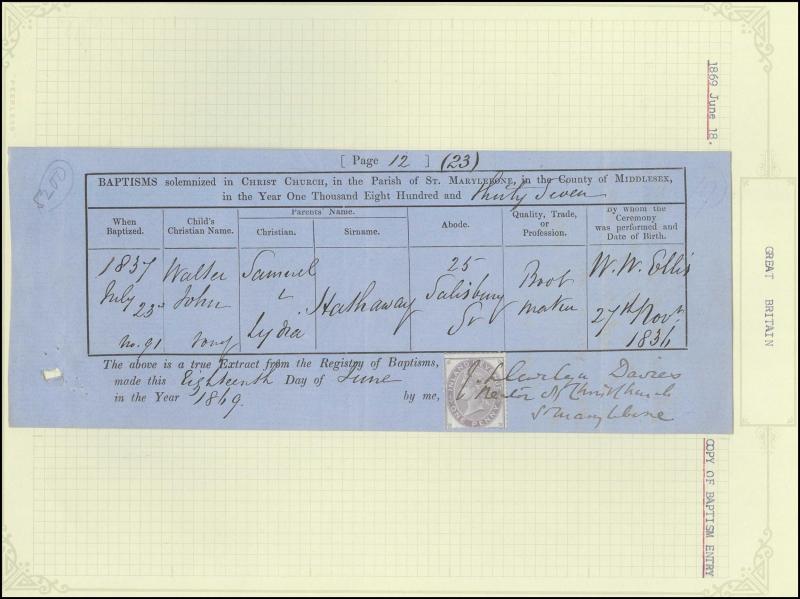 1869 June 18.
[ Page 12 ] (23)
5200
BAPTISMS solemnized in CHRIST CHURCH, in the Parish of ST. MARYLEBONE, in the County of MIDDLESEX,
in the Year One Thousand Eight Hundred and Thirty Seven
When Baptized.
Child's Christian Name.
Parents Name.
Christian.
Sirname.
Abode.
Quality, Trade, or Profession.
By whom the Ceremony was performed and Date of Birth.
1837
July 23d
no. 91
Walter
John
Samuel
&
Lydia
Hathaway
25
Salisbury
St
Boot
maker
W. W. Ellis
27th Novr
1836
The above is a true Extract from the Registry of Baptisms,
made this Eighteenth Day of June
in the Year 1869. by me,
J. Llewelyn Davies
Rector of Christ Church
St Marylebone
INLAND REVENUE
ONE PENNY
GREAT BRITAIN
COPY OF BAPTISM ENTRY